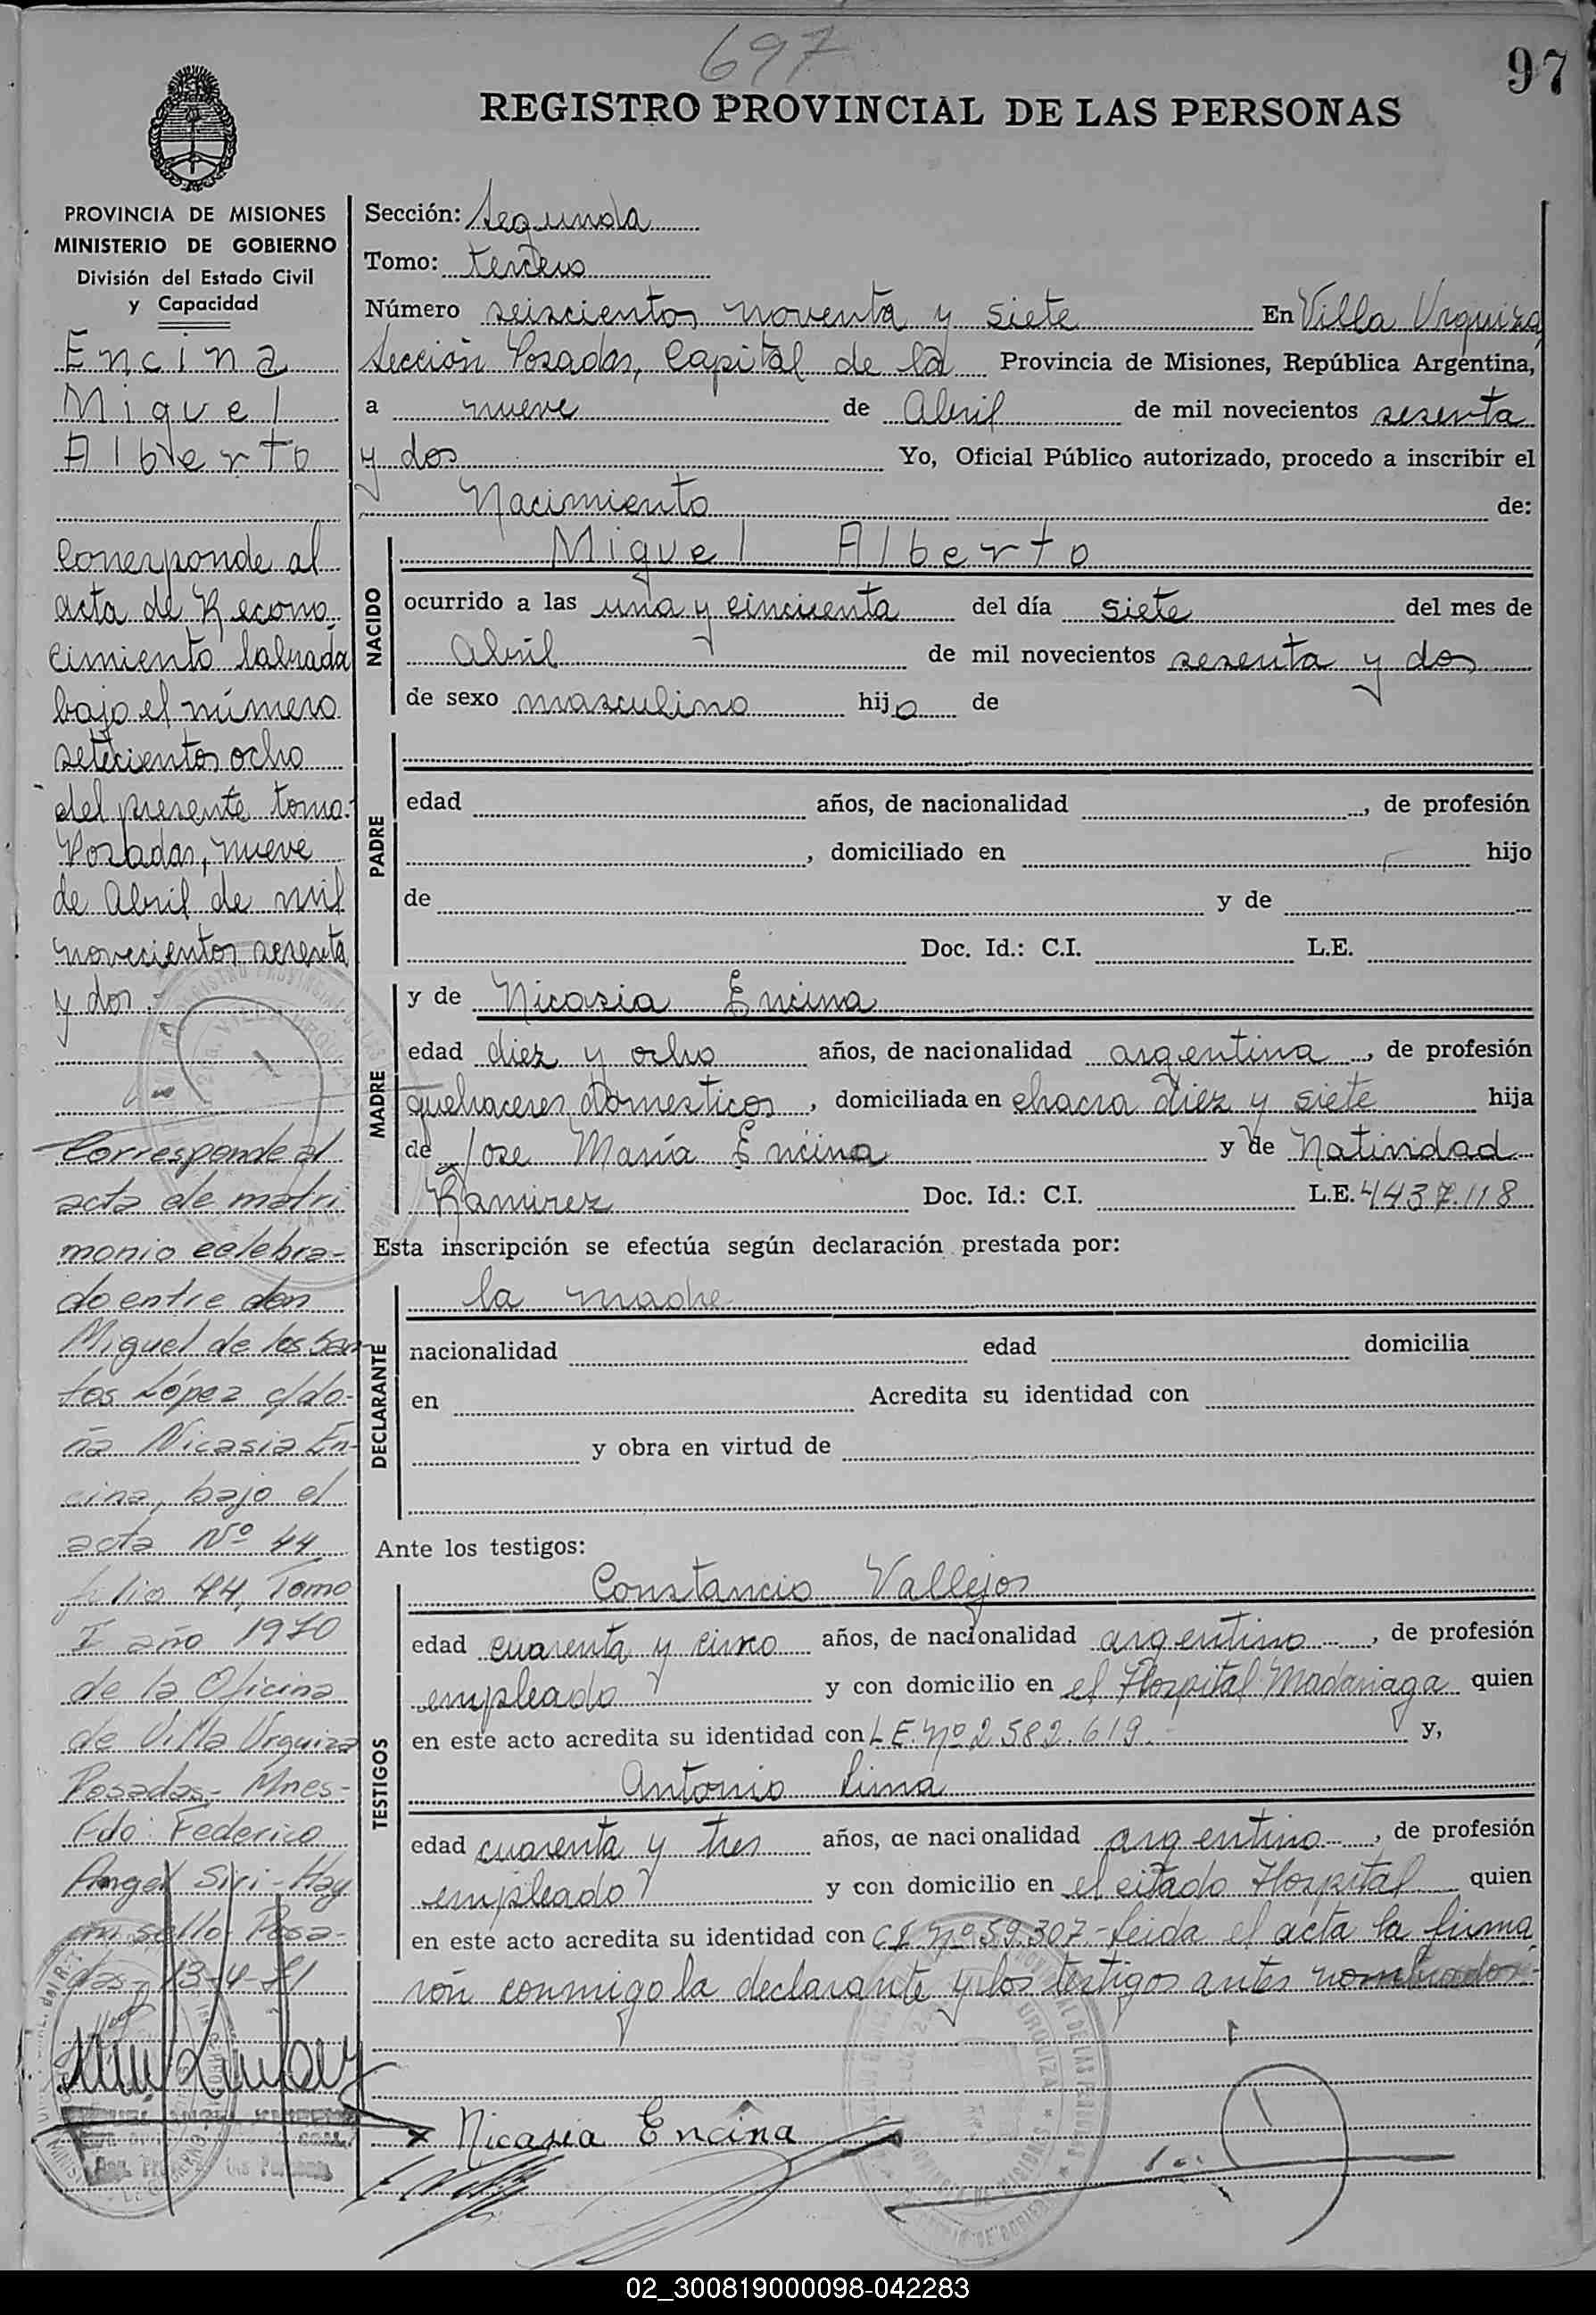 697
97
REGISTRO PROVINCIAL DE LAS PERSONAS
PROVINCIA DE MISIONES
MINISTERIO DE GOBIERNO
División del Estado Civil
y Capacidad
Encina
Miguel
Alberto
Corresponde al
acta de Recono
cimiento labrada
bajo el número
setecientos ocho
del presente tomo.
Posadas, nueve
de Abril de mil
novecientos sesenta
y dos.-
Corresponde al
acta de matri
monio celebra-
do entre don
Miguel de los San
tos López c/do-
ña Nicasia En-
cina, bajo el
acta Nº 44
folio 44, Tomo
I año 1970
de la Oficina
de Villa Urquiza
Posadas- Mnes-
Fdo: Federico
Angel Siri-Hay
un sello- Posa-
das, 13-4-81
Sección: Segunda
Tomo: tercero
Número seiscientos noventa y siete En Villa Urquiza,
Sección Posadas, Capital de la Provincia de Misiones, República Argentina,
a nueve de Abril de mil novecientos sesenta
y dos Yo, Oficial Público autorizado, procedo a inscribir el
Nacimiento de:
NACIDO
Miguel Alberto
ocurrido a las una y cincuenta del día siete del mes de
Abril de mil novecientos sesenta y dos
de sexo masculino hijo de
PADRE
edad años, de nacionalidad , de profesión
, domiciliado en hijo
de y de
Doc. Id.: C.I. L.E.
MADRE
y de Nicasia Encina
edad diez y ocho años, de nacionalidad argentina, de profesión
quehaceres domesticos, domiciliada en chacra diez y siete hija
de Jose María Encina y de Natividad
Ramirez Doc. Id.: C.I. L.E. 4437.118
Esta inscripción se efectúa según declaración prestada por:
DECLARANTE
la madre
nacionalidad edad domicilia
en Acredita su identidad con
y obra en virtud de
Ante los testigos:
TESTIGOS
Constancio Vallejos
edad cuarenta y cinco años, de nacionalidad argentino, de profesión
empleado y con domicilio en el Hospital Madariaga quien
en este acto acredita su identidad con L E. Nº 2.582.619. y,
Antonio Lima
edad cuarenta y tres años, de nacionalidad argentino, de profesión
empleado y con domicilio en el citado Hospital quien
en este acto acredita su identidad con C I. Nº 59.307-Leida el acta la firma
rón conmigo la declarante y los testigos antes nombrados-
Nicasia Encina
02_300819000098-042283